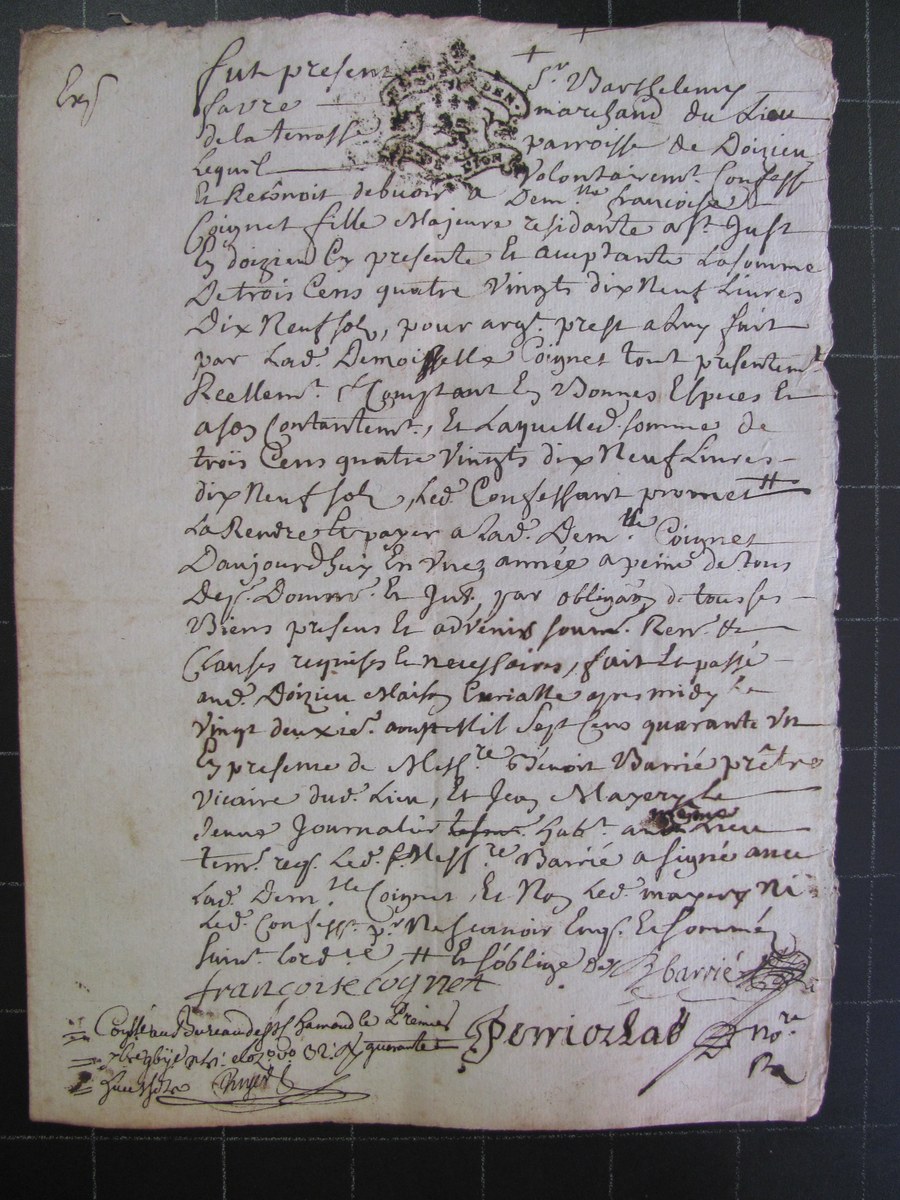 Exp
fut present Sr Barthelemy
favre marchand du Lieu
de la terrasse parroisse de Doizieu
Lequel Volontairemt Confesse
Et Reconoit debuoir a Demlle francoise
Coignet fille Majeure residante a St Just
En doizieu Cy presente Et aceptante La somme
De trois Cens quatre Vingts dix Neuf Livres
Dix Neuf sols, pour argt. prest a Luy fait
par Lad. Demoisselle Coignet tout presentemt
Reellemt. Comptant En Bonnes Especes Et
a son Contantemt, Et Laquelle d. somme de
trois Cens quatre Vingts dix Neuf Livres
dix Neuf sols, Led. Confessant promet
La Rendre Et payer a Lad. Demlle Coignet
Daujourdhuy En Vnez année a peine de tous
Des. Domme. Et Int. par obligaon de tous ses
Biens presens Et advenir soum. Ren. &
Clauses requises Et necessaires, fait Et passé
aud. Doizieu Maison Curialle apres midy Le
Vingt deuxie. aoust Mil Sept Cens quarante Vn
En presence de Messre Benoit Barrié prêtre
Vicaire dud. Lieu, Et Jean Mayery Le
Jeune Journalier habt. au mesme Lieu
tem. reqs. Led. Messre Barrié a signé avec
Lad. Demlle Coignet, Et Non Led. mayery Ni
Led. Confesst. pr Ne scavoir Enqs. Et sommés
suivt. Lordce
B barrié
francoise coignet
Perriochat Nore
Ra
Conllé au Bureau de St Chamond le
quarante